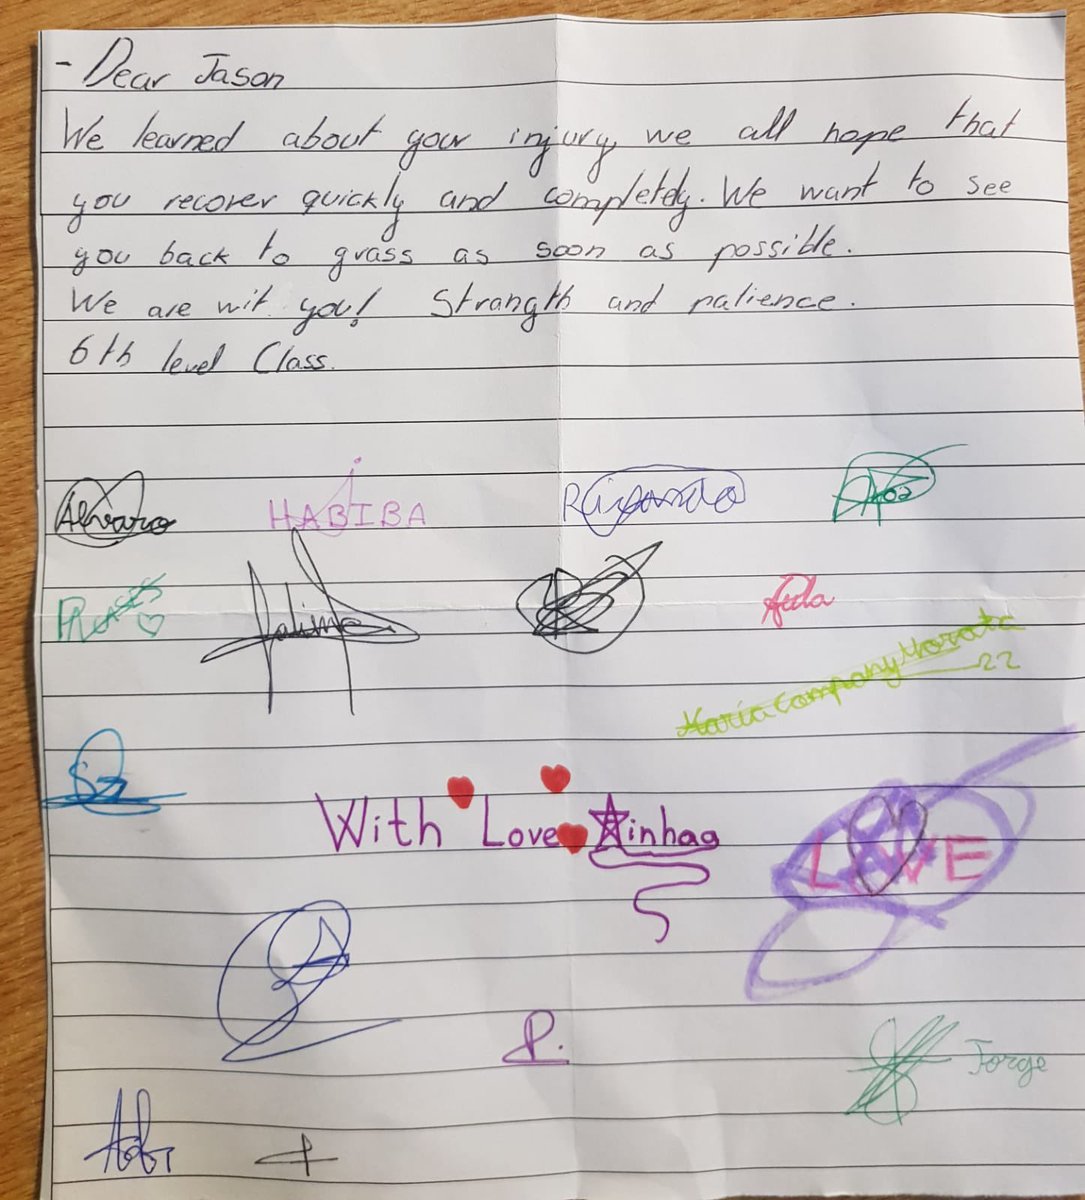 - Dear Jason
We learned about your injury, we all hope that
you recover quickly and completely. We want to see
you back to grass as soon as possible.
We are wit you! Strangth and patience.
6th level Class.
Alvaro HABIBA
Aida
María Company Morata
22
With Love Ainhoa
LOVE
P.
Jorge